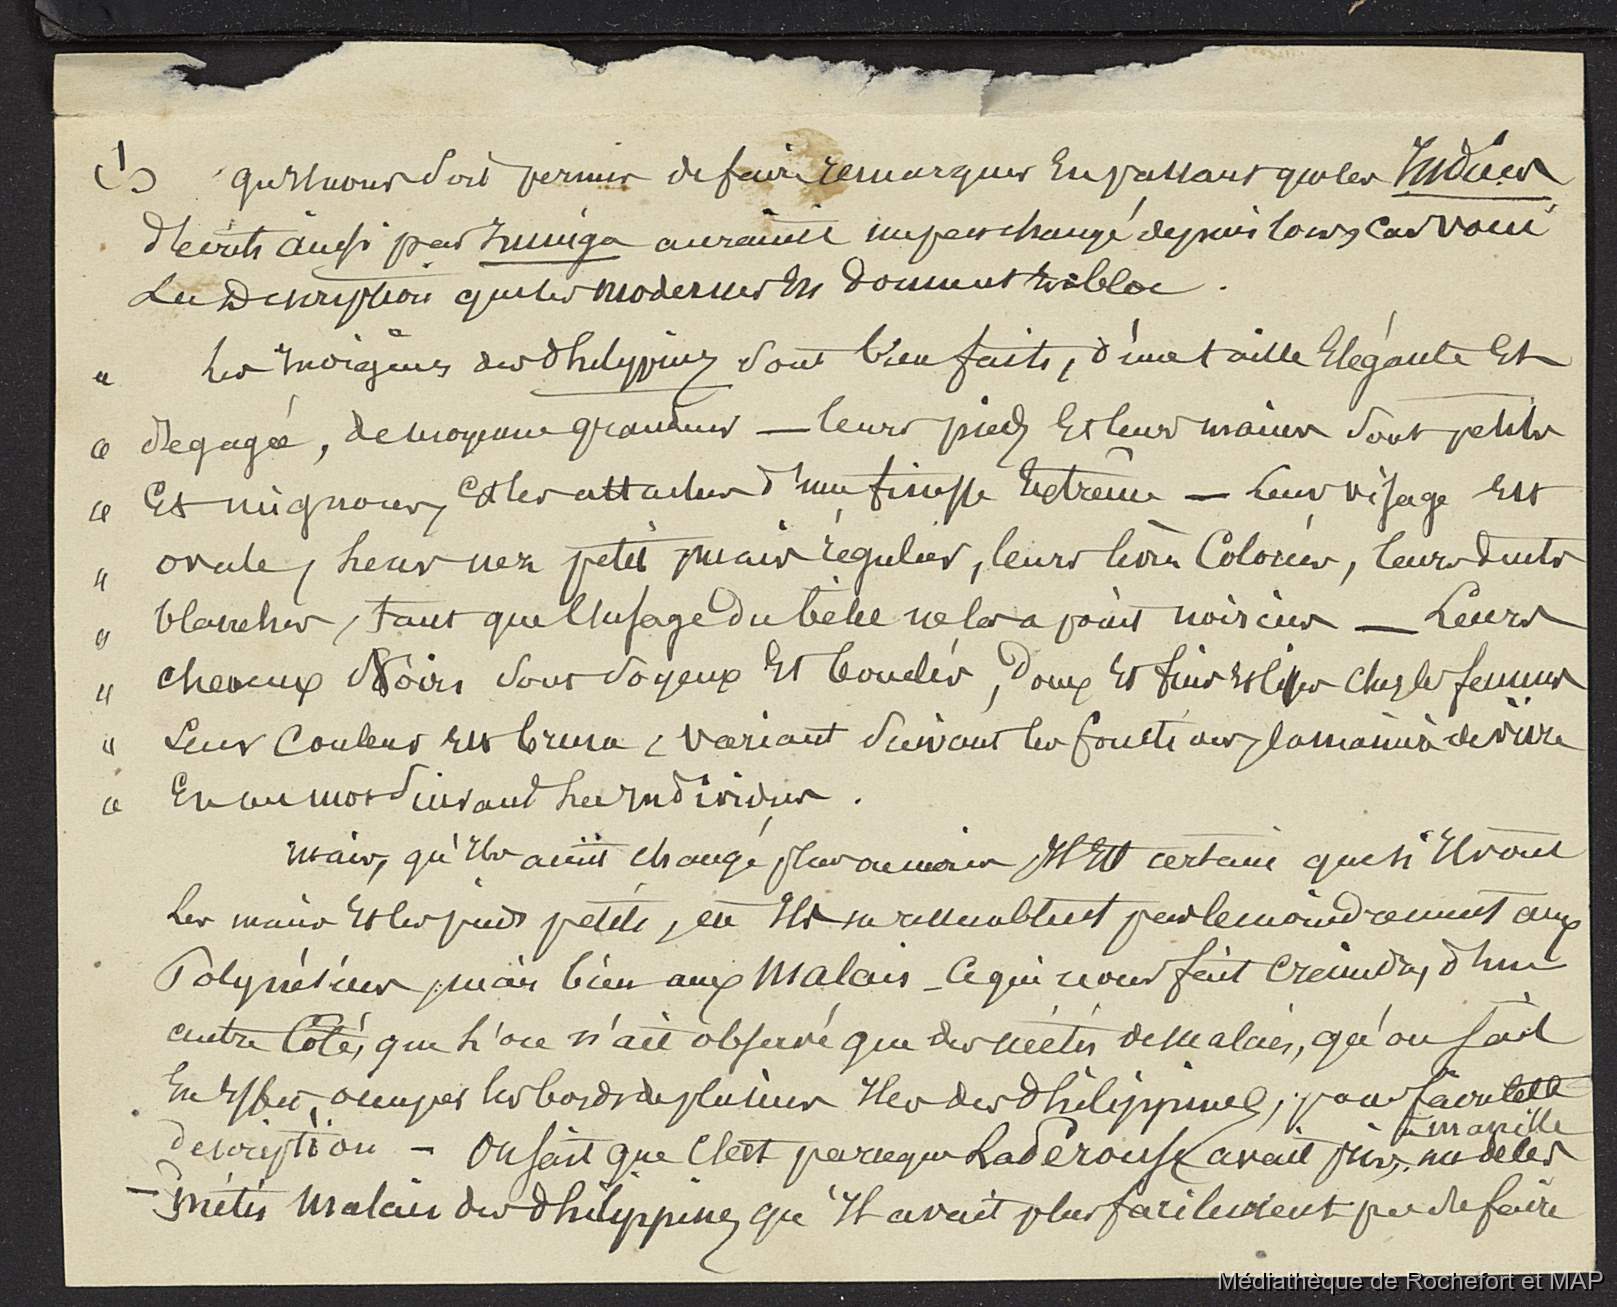 (1) qu'il nous soit permis de faire remarquer en passant que les Indiens
décrits ainsi par Zuniga auraient un peu changé depuis lors, car voici
La Description que les modernes en donnent
" Les Indigènes des Philippines sont bien faits, d'une taille élégante et
" dégagée, de moyenne grandeur — leurs pieds et leurs mains sont petits
" et mignons, et les attaches d'une finesse extrême — Leur visage est
" ovale, leur nez petit mais régulier, leurs lèvres colorées, leurs dents
" blanches, tant que l'usage du bétel ne les a point noircies — Leurs
" cheveux noirs sont soyeux et bouclés, doux et fins et lisses chez les femmes
" Leur couleur est brune, variant suivant les fonctions, la manière de vivre
" En un mot suivant les individus .
Mais, qu'ils aient changé plus ou moins, il est certain que s'ils ont
les mains et les pieds petits, ils ne ressemblent pas le moindrement aux
Polynésiens, mais bien aux Malais - ce qui nous fait craindre, d'un
autre côté, que l'on n'ait observé que des métis de malais, qu'on sait
en effet, occuper les bords de plusieurs Iles des Philippines, pour faire cette
description - On sait que c'est parceque La Pérouse avait pris, à manille un de les
- métis Malais des Philippines qu'il avait plus facilement pu se faire
Médiathèque de Rochefort et MAP